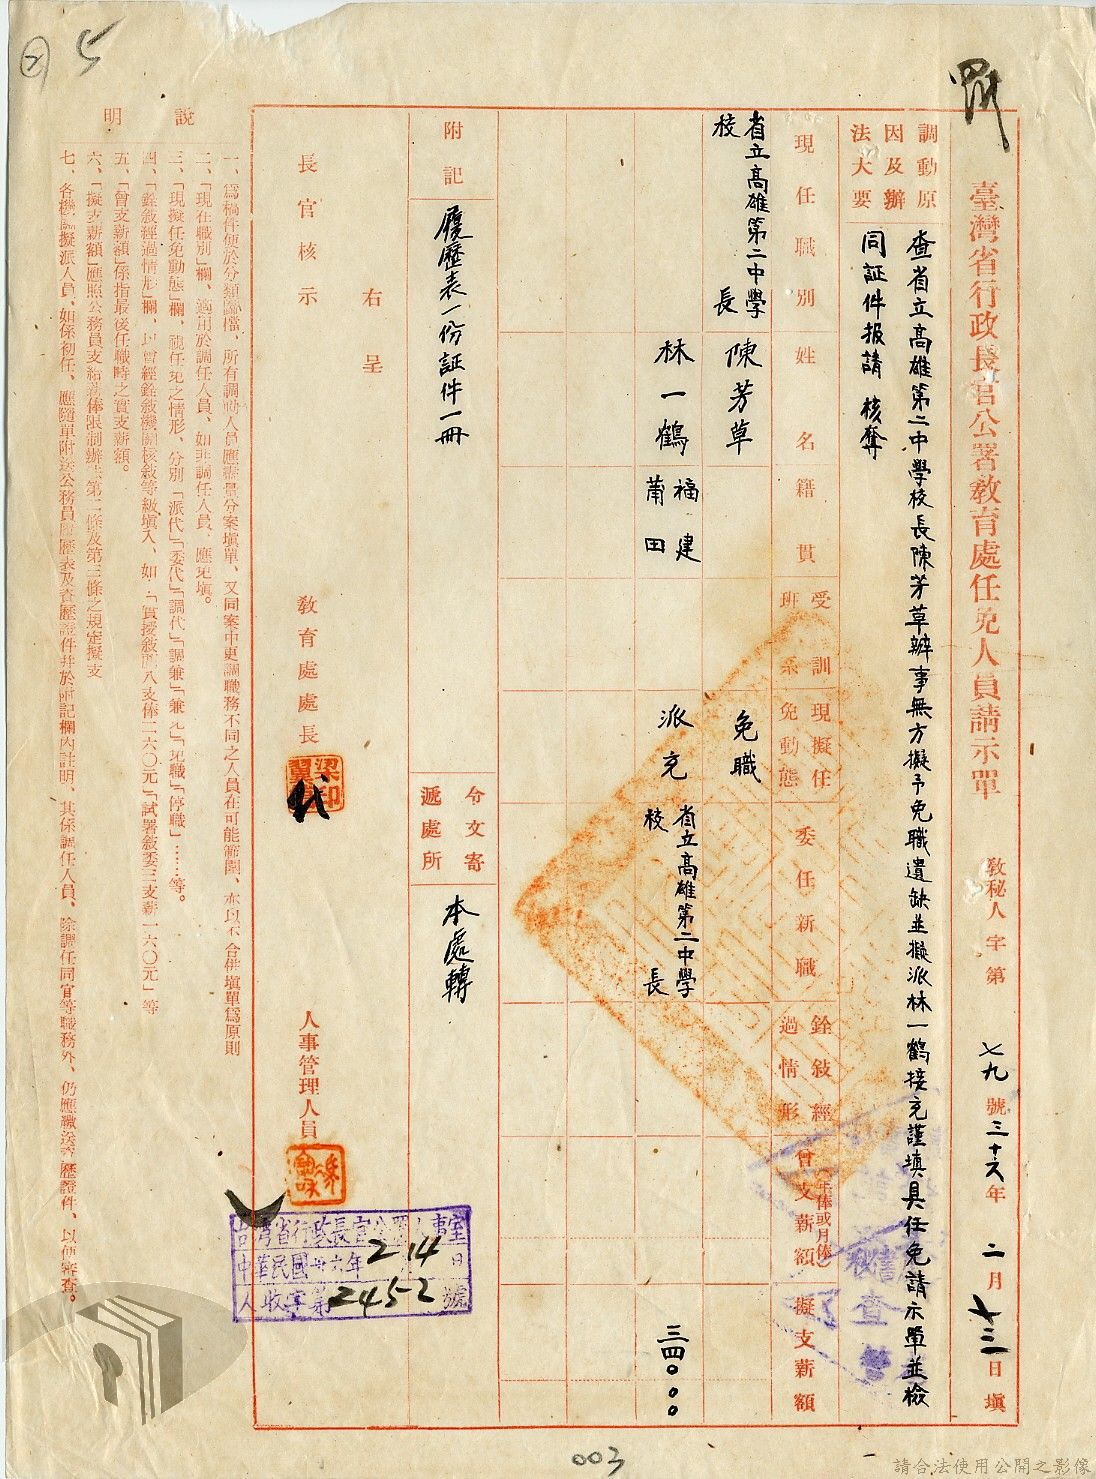 臺灣省行政長官公署教育處任免人員請示單 教秘人字第七九號 三十六年二月十三日填
調動原因及辦法大要
查省立高雄第二中學校長陳芳草辦事無方擬予免職遺缺並擬派林一鶴接充謹填具任免請示單並檢
同証件报請 核奪
現任職別
姓名
籍貫
受訓班系
現擬任免動態
委任新職
銓敍經過情形
曾支薪額(年俸或月俸)
擬支薪額
省立高雄第二中學校長 陳芳草 免職
林一鶴 福建莆田 派充 省立高雄第二中學校長 三四〇〇〇
附記
履歷表一份証件一冊
令文寄遞處所
本處轉
右呈
長官核示
教育處處長
代
人事管理人員
台灣省行政長官公署人事室
中華民國卅六年2 14日
人收字第2452號
說明
一、爲稿件便於分類歸檔、所有調動人員應盡量分案填單、又同案中更調職務不同之人員在可能範圍、亦以不合併填單爲原則
二、「現在職別」欄、適用於調任人員、如非調任人員、應免填。
三、「現擬任免動態」欄、視任免之情形、分別「派代」「委代」「調代」「調兼」「兼免」「免職」「停職」……等。
四、「銓敍經過情形」欄、以曾經銓敍機關核敍等級填入、如:「實授敍薦八支俸二六〇元」「試署敍委三支薪一六〇元」等
五、「曾支薪額」係指最後任職時之實支薪額。
六、「擬支薪額」應照公務員支給薪俸限制辦法第二條及第三條之規定擬支
七、各機關擬派人員、如係初任、應隨單附送公務員履歷表及資歷證件并於附記欄內註明、其係調任人員、除調任同官等職務外、仍應繳送資歷證件、以便審查。
5
003
請合法使用公開之影像